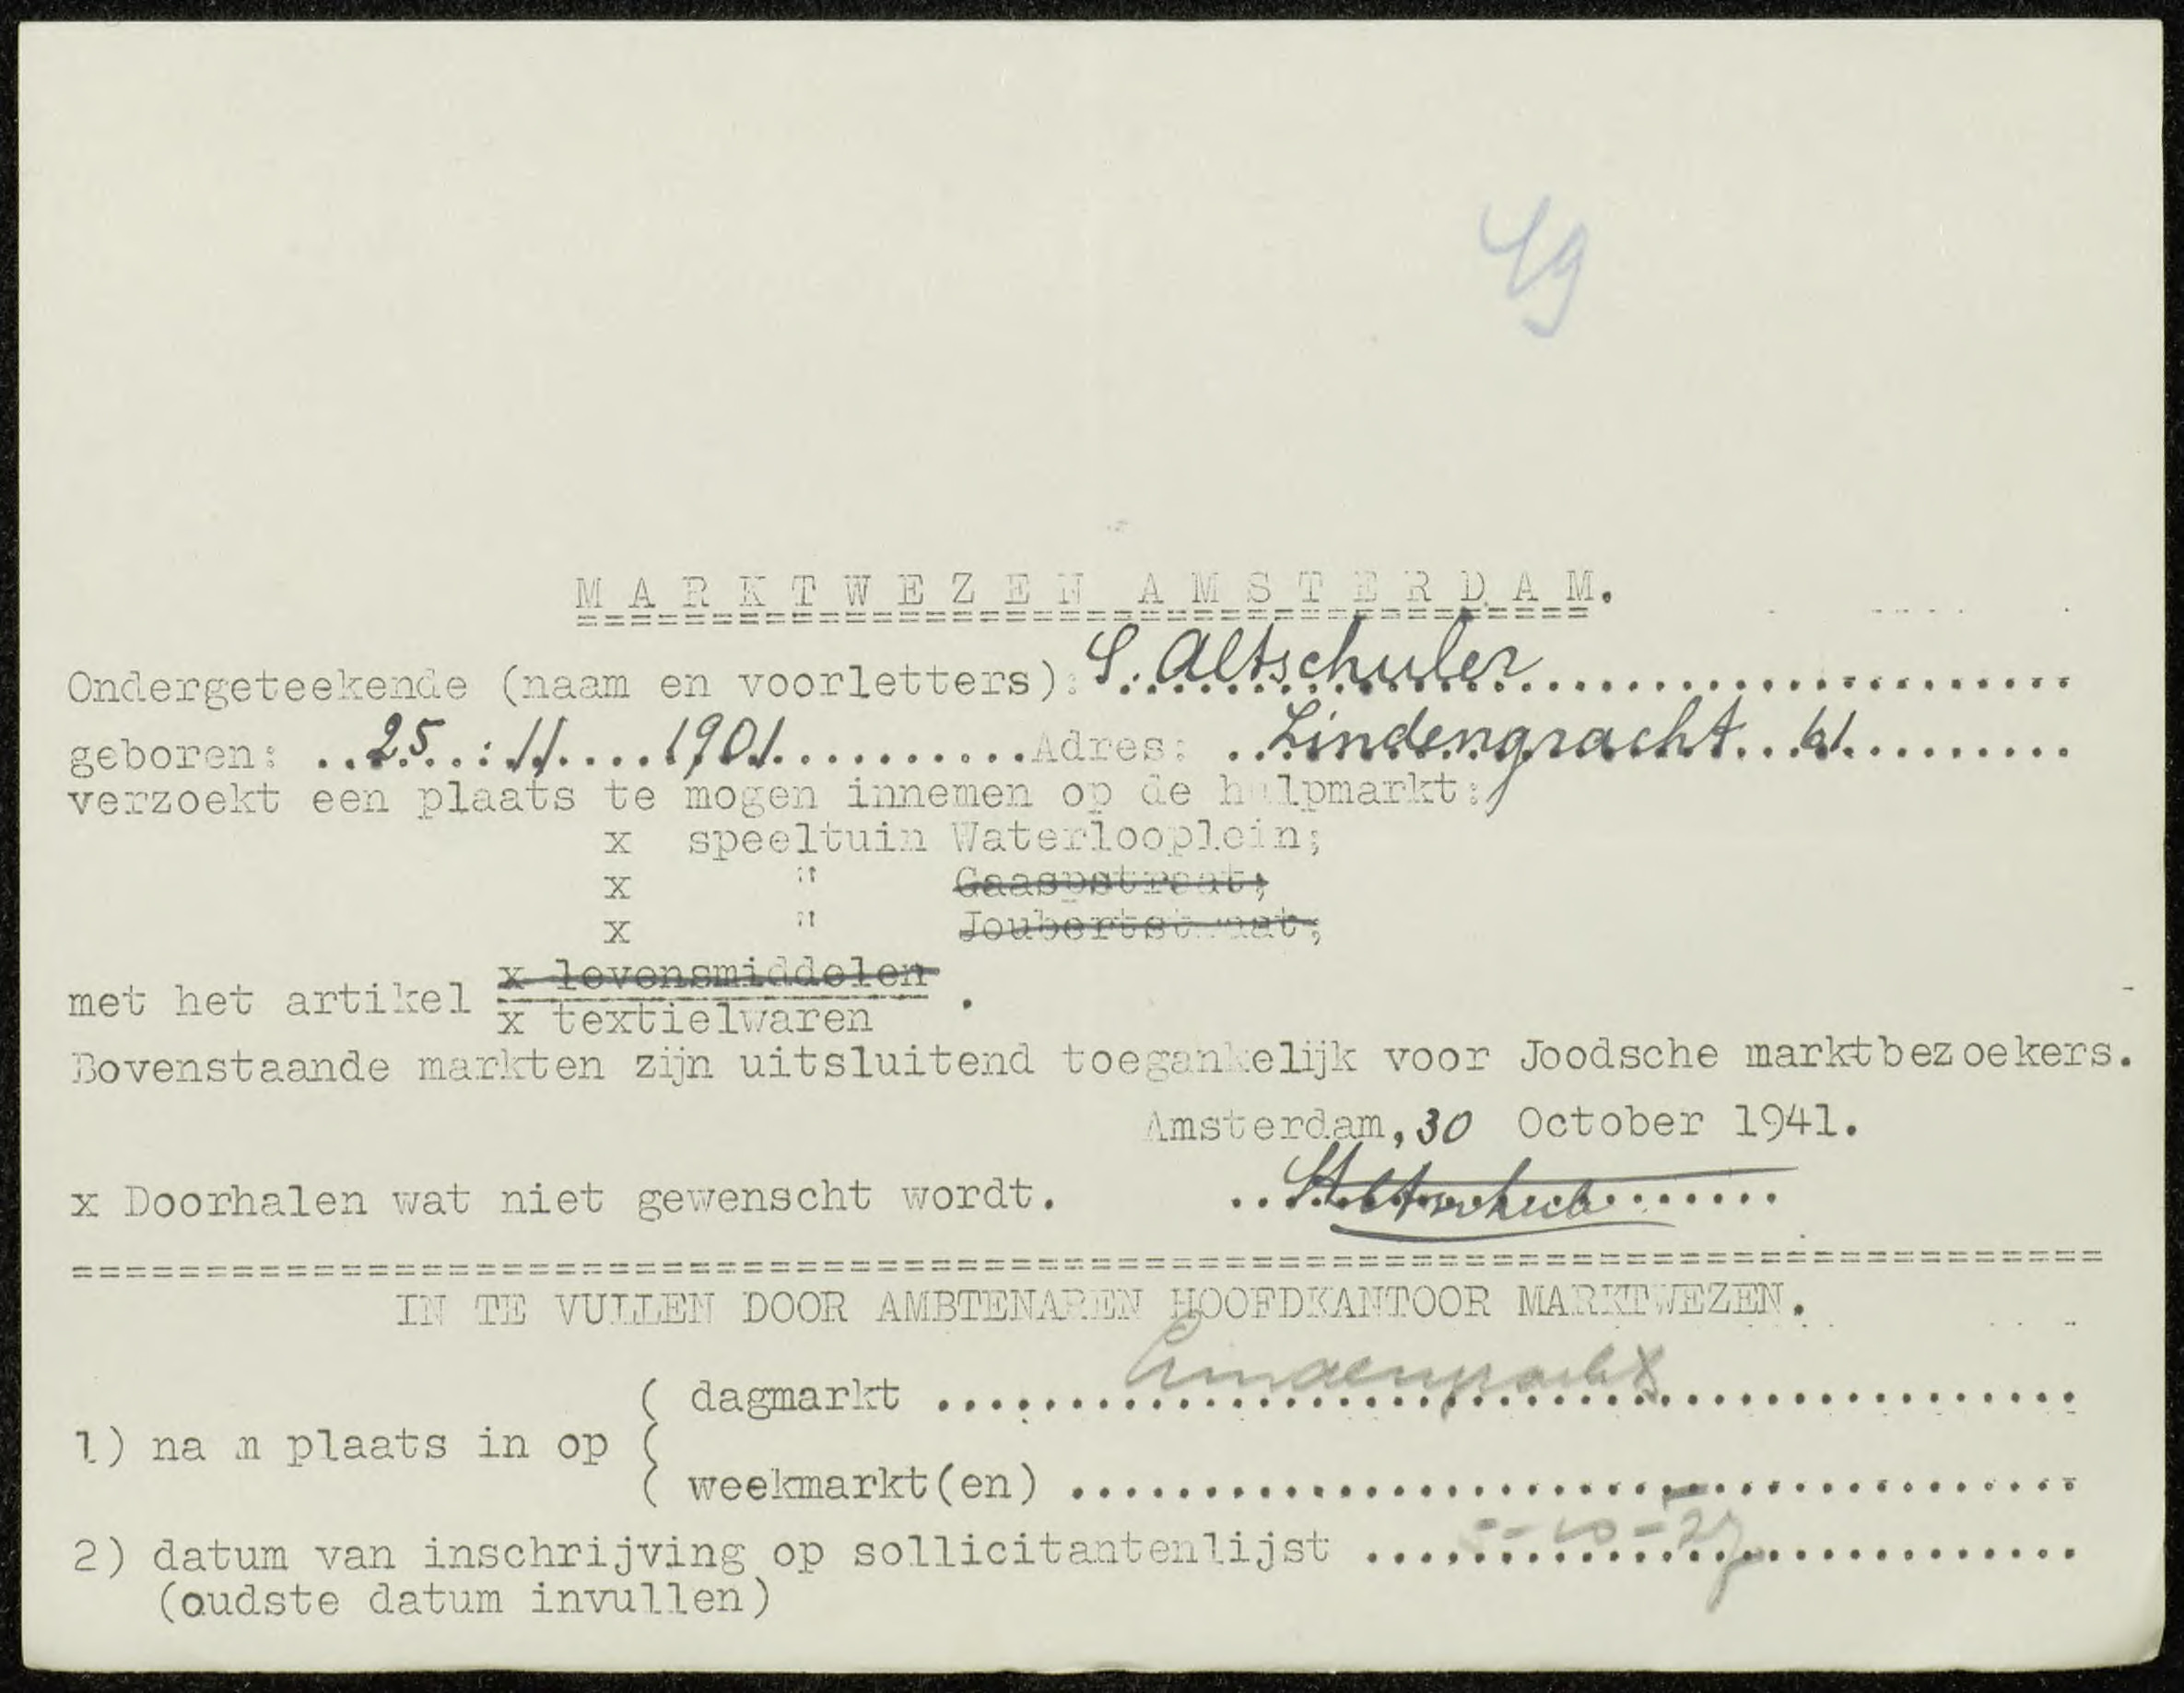 49
MARKTWEZEN AMSTERDAM.
Ondergeteekende (naam en voorletters): S. Altschuler
geboren: 25 : 11 1901 Adres: Lindengracht 61
verzoekt een plaats te mogen innemen op de hulpmarkt:
x speeltuin Waterlooplein;
x " Gaaspstraat;
x " Joubertstraat;
met het artikel x levensmiddelen
x textielwaren .
Bovenstaande markten zijn uitsluitend toegankelijk voor Joodsche marktbezoekers.
Amsterdam, 30 October 1941.
x Doorhalen wat niet gewenscht wordt. SAltschuler
IN TE VULLEN DOOR AMBTENAREN HOOFDKANTOOR MARKTWEZEN.
( dagmarkt Lindengracht
1) na m plaats in op (
( weekmarkt(en)
2) datum van inschrijving op sollicitantenlijst
(oudste datum invullen)